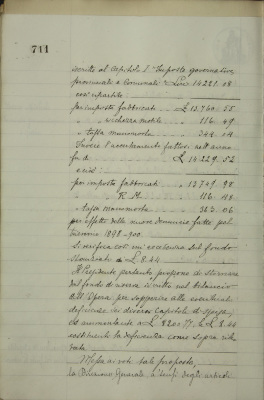 711
iscritte al Capitolo 1 Imposte governative,
provinciali e Comunali Lire 14221.18
così ripartite
per imposta fabbricati £ 13760.55
" " ricchezza mobile " 116.49
" tassa manomorta " 344.14
Invece l'accertamento fattosi nell'anno
fu di £ 14229.52
cioè:
per imposta fabbricati " 13749.98
" " R. M. " 116.48
" tassa manomorta " 363.06
per effetto delle nuove denuncie fatte pel
triennio 1898-900.
Si verifica così un'eccedenza sul fondo
stanziati di £ 8.34
Il Presidente pertanto propone di stornare
dal fondo di riserva iscritto nel bilancio
dell'Opera per sopperire alle eventuali
deficienze dei diversi capitoli di spesa,
ed ammontante a £ 8200.77 le £ 8.34
costituenti la deficienza come sopra
Messa ai voti tale proposta,
la Direzione Generale a sensi degli articoli